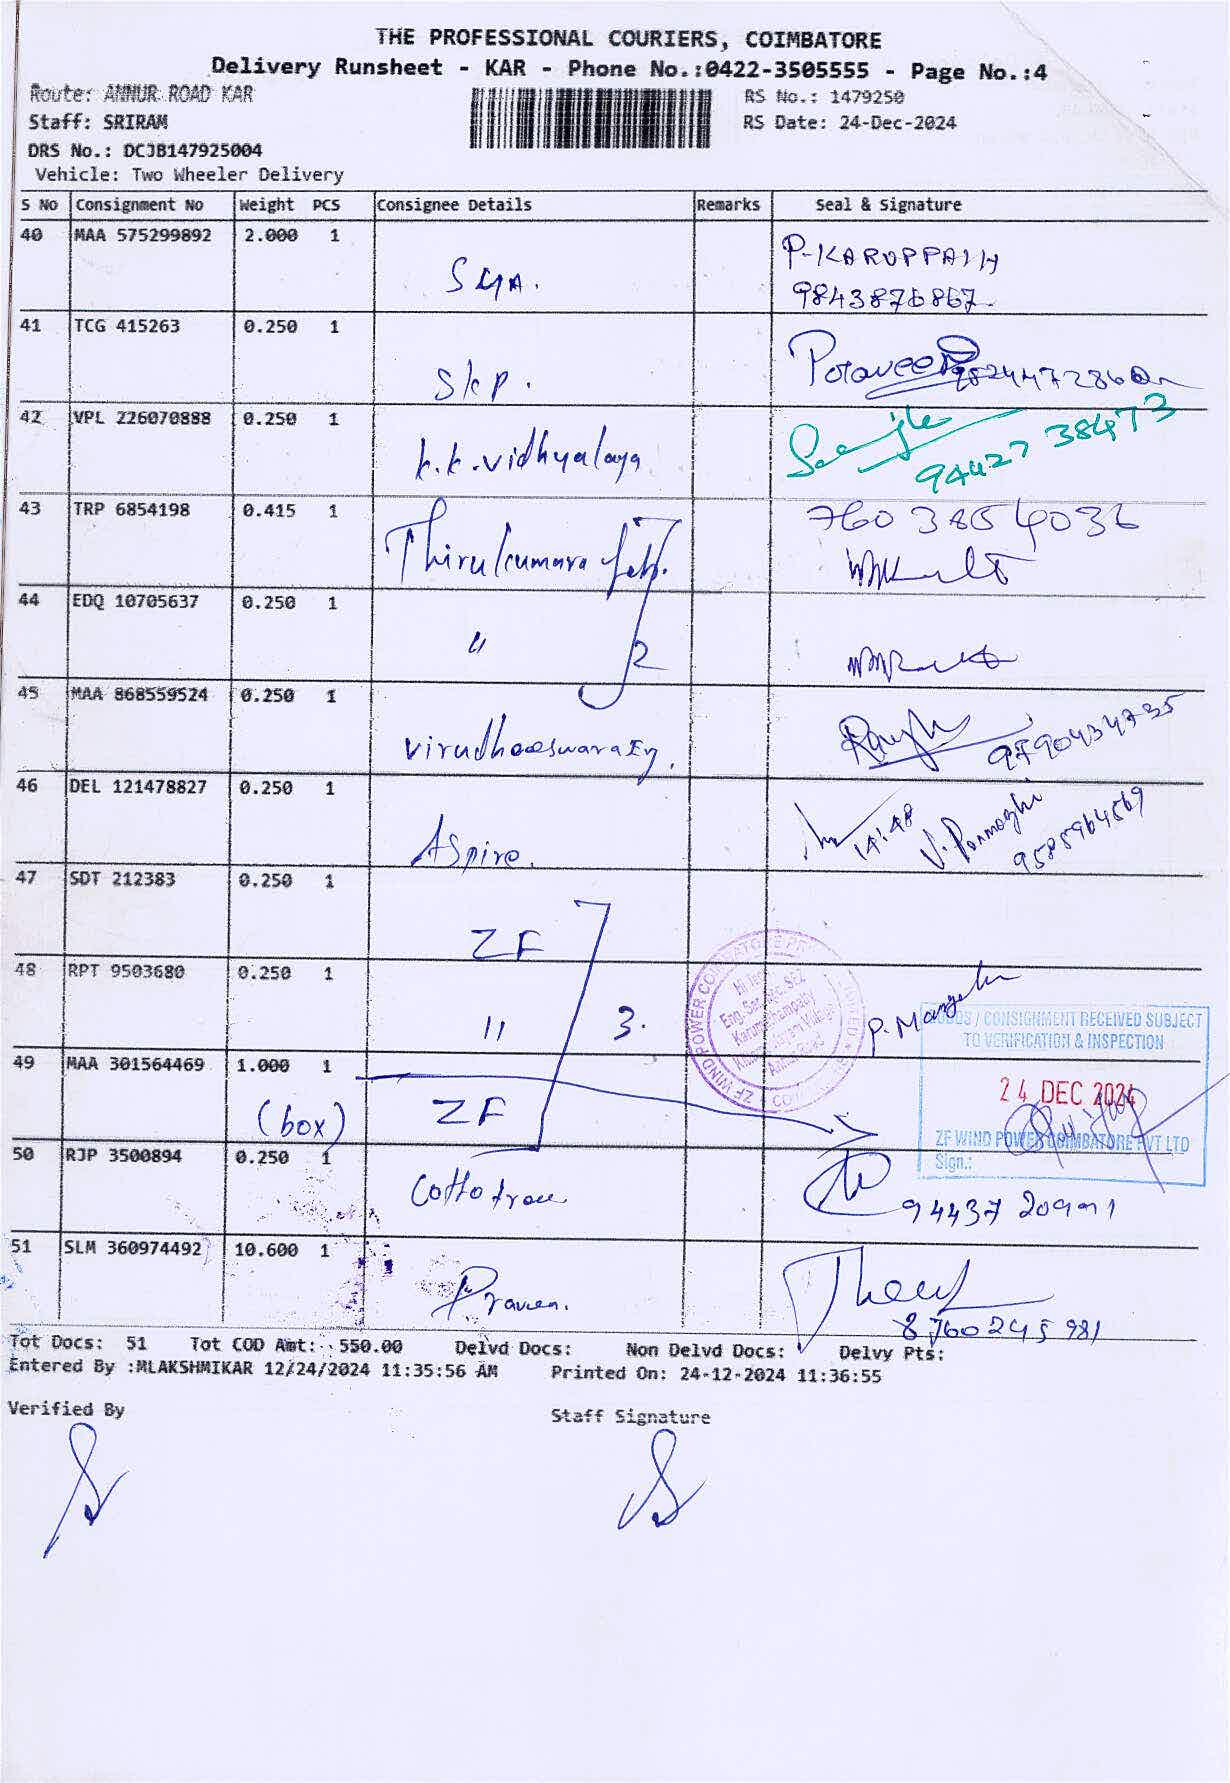 THE PROFESSIONAL COURIERS, COIMBATORE
Delivery Runsheet - KAR - Phone No.:0422-3505555 - Page No.:4
Route: ANNUR ROAD KAR
RS No.: 1479250
Staff: SRIRAM
RS Date: 24-Dec-2024
DRS No.: DCJB147925004
Vehicle: Two Wheeler Delivery
S No Consignment No Weight PCS Consignee Details Remarks Seal & Signature
40 MAA 575299892 2.000 1
P-KARUPPAIH
SMA.
9843876867.
41 TCG 415263 0.250 1
Praveen
SKP.
42 VPL 226070888 0.250 1
k.k.vidhyalaya
94427 38473
43 TRP 6854198 0.415 1
760 3854036
Thirukumara
44 EDQ 10705637 0.250 1
〃 2
45 MAA 868559524 0.250 1
virudheeswara Eng.
9790434735
46 DEL 121478827 0.250 1
14:48 V. Ponmozhi
Aspire.
9585964569
47 SDT 212383 0.250 1
ZF
48 RPT 9503680 0.250 1
〃 3.
ZF WIND POWER COIMBATORE
P. Mangela
GOODS / CONSIGNMENT RECEIVED SUBJECT
TO VERIFICATION & INSPECTION
49 MAA 301564469 1.000 1
24 DEC 2024
(box) ZF
ZF WIND POWER COIMBATORE PVT LTD
Sign.:
50 RJP 3500894 0.250 1
94437 20991
51 SLM 360974492 10.600 1
Praveen.
8760245981
Tot Docs: 51 Tot COD Amt: 550.00 Delvd Docs: Non Delvd Docs: Delvy Pts:
Entered By :MLAKSHMIKAR 12/24/2024 11:35:56 AM Printed On: 24-12-2024 11:36:55
Verified By Staff Signature